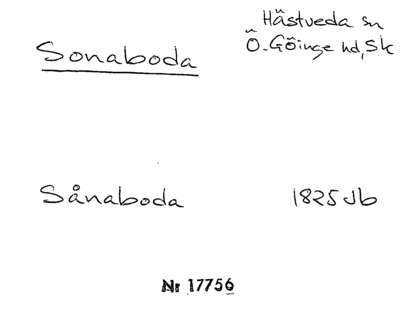 Sonaboda
Hästveda sn
Ö. Göinge hd, Sk
Sånaboda 1825 Jb
Nr 17756